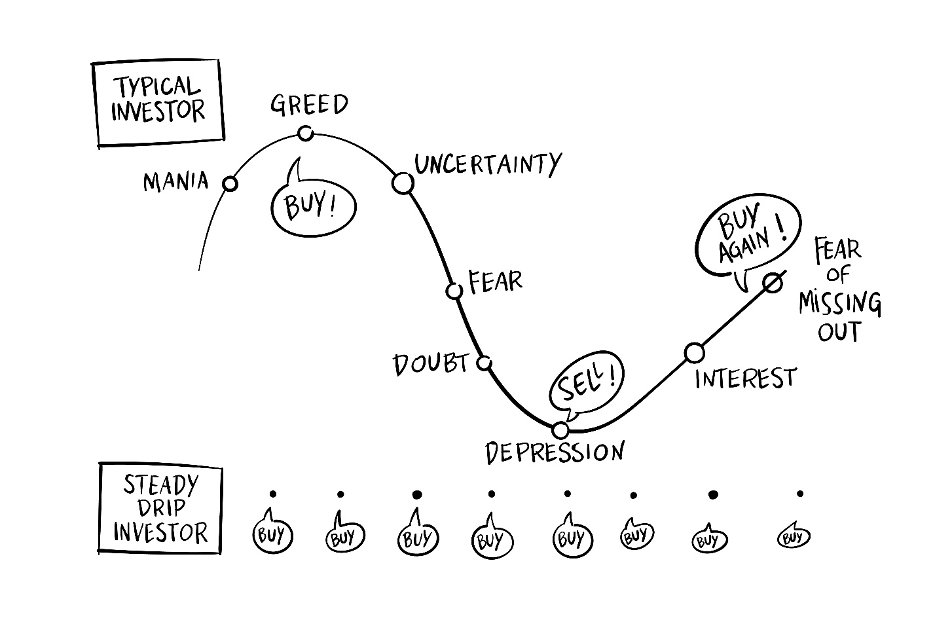 TYPICAL
INVESTOR
GREED
MANIA
BUY!
UNCERTAINTY
FEAR
DOUBT
SELL!
DEPRESSION
INTEREST
BUY
AGAIN!
FEAR
OF
MiSSING
OUT
STEADY
DRIP
INVESTOR
BUY
BUY
BUY
BUY
BUY
BUY
BUY
BUY